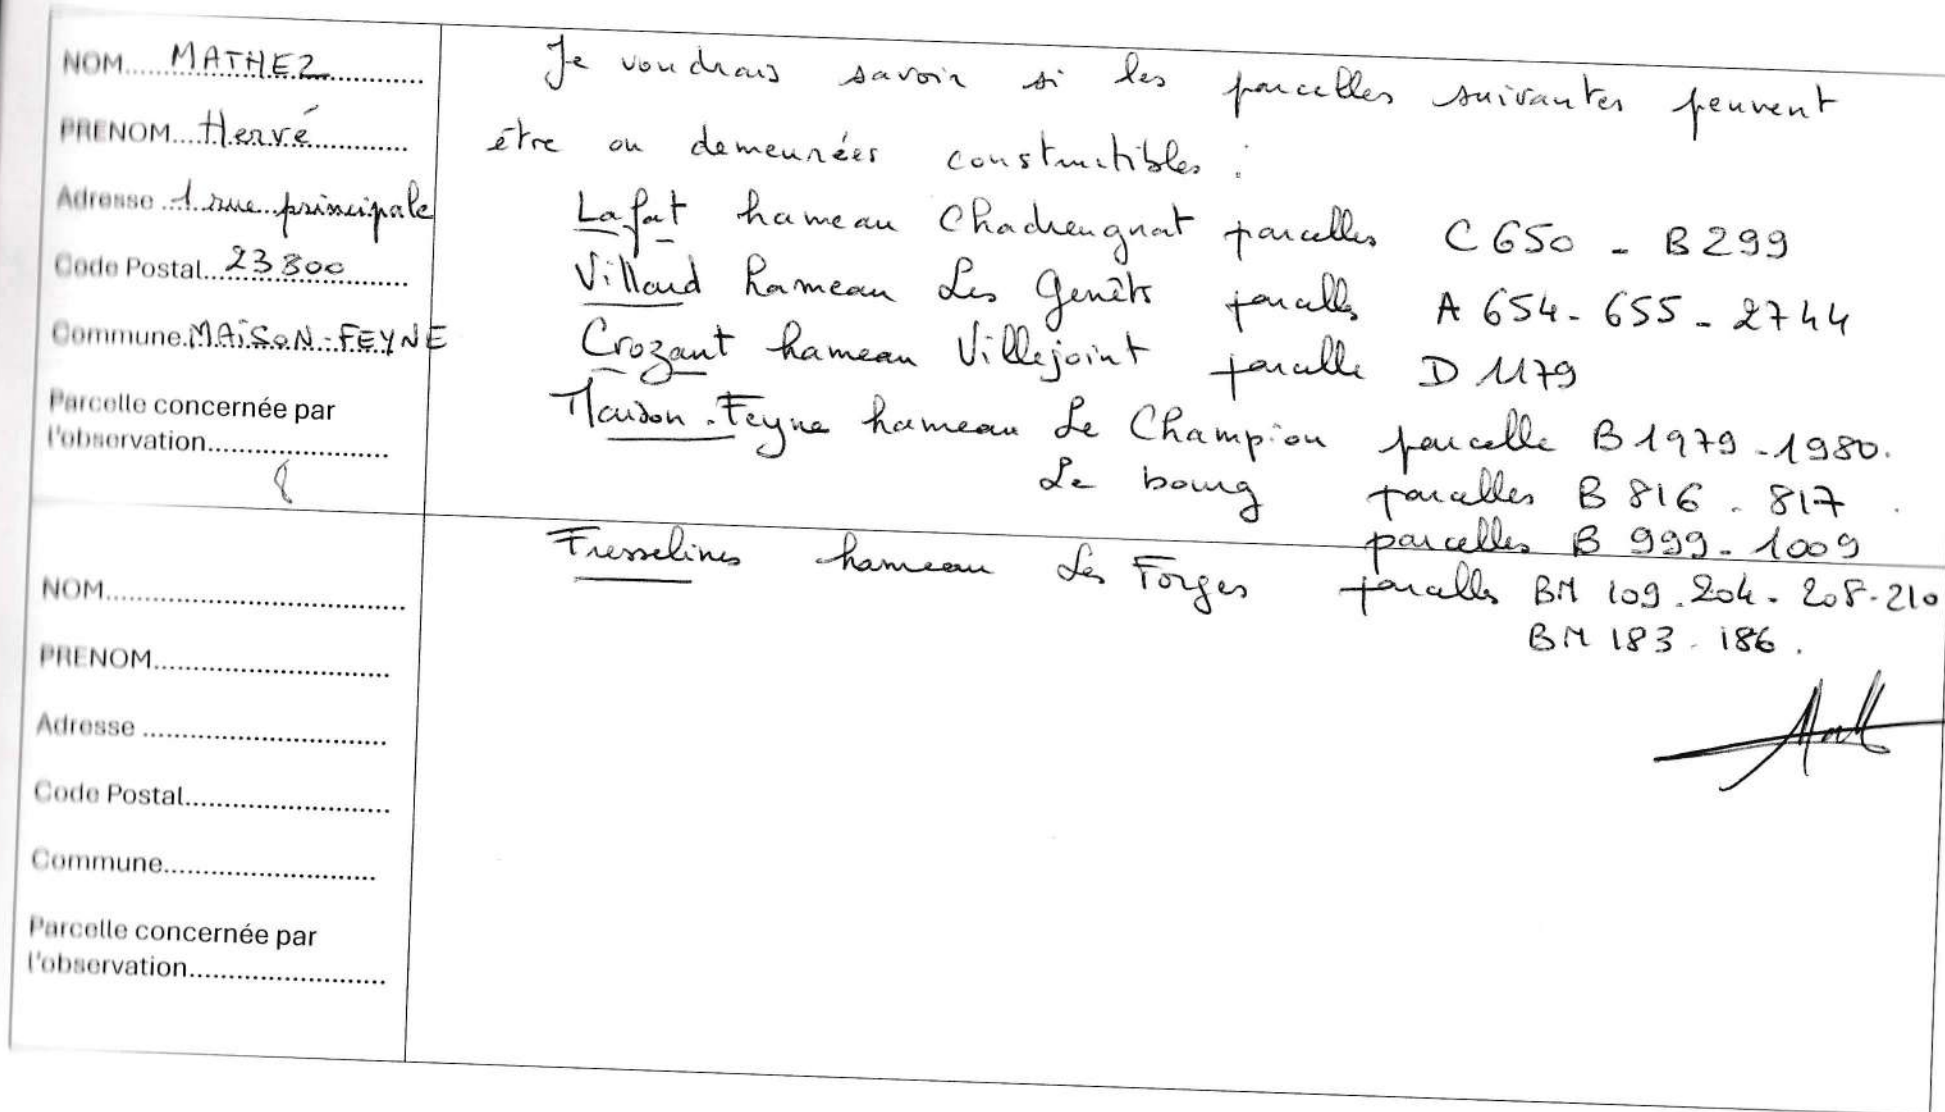 NOM.....MATHEZ..............
PRENOM....Hervé..............
Adresse ..1 rue principale
Code Postal...23800...........
Commune.MAISON-FEYNE
Parcelle concernée par
l'observation........................
8
Je voudrais savoir si les parcelles suivantes peuvent
être ou demeurées constructibles :
Lafat hameau Chadrengnat parcelles C 650 - B 299
Villard hameau Les Genêts parcelles A 654 - 655 - 2744
Crozant hameau Villejoint parcelle D 1179
Maison-Feyne hameau Le Champion parcelle B 1979 - 1980.
Le bourg parcelles B 816 - 817.
parcelles B 999 - 1009
Fresselines hameau Les Forges parcelles BM 109 - 204 - 208 - 210
BM 183 - 186.
NOM........................................
PRENOM................................
Adresse .................................
Code Postal...........................
Commune............................
Parcelle concernée par
l'observation..........................